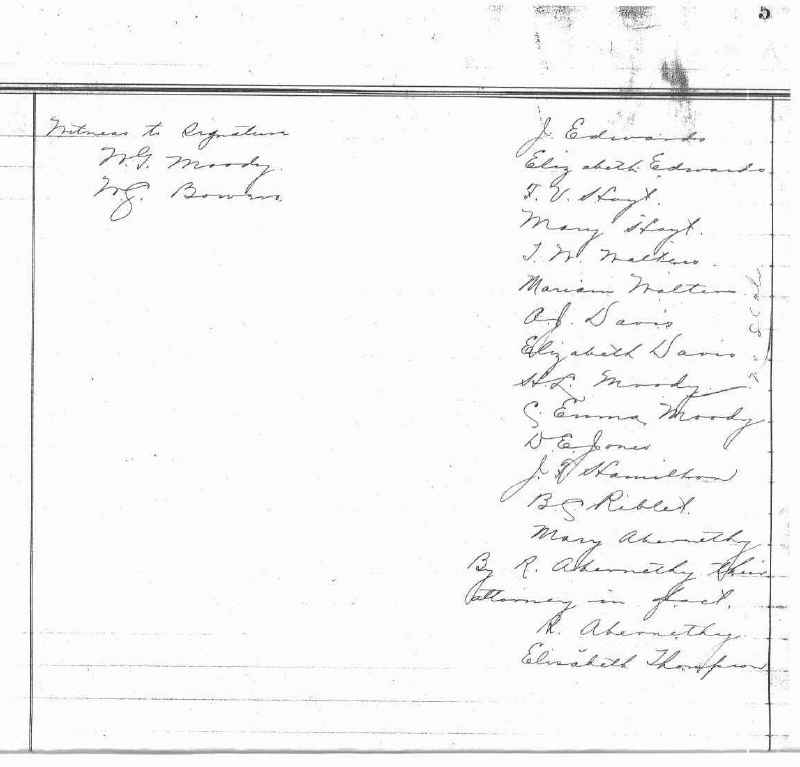 5
Witness to Signature
W.G. Moody.
W.G. Bowers.
J. Edwards
Elizabeth Edwards
F. V. Hoyt.
Mary Hoyt.
T. W. Walters.
Mariam Walters
A.J. Davis
Elizabeth Davis
H. L. Moody
G. Emma Moody
D. E. Jones
J. F. Hamilton
B. G. Riblet.
Mary Abernethy
By R. Abernethy their
attorney in fact.
R. Abernethy
Elisabeth Thompson
no seals